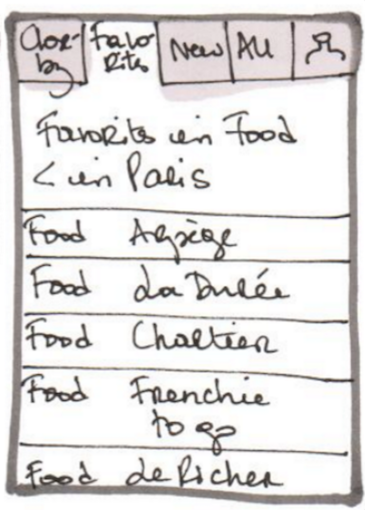 Clos-
by
Favo-
rites
New
All
Favorits in Food
< in Paris
Food Arpège
Food La Durée
Food Chartier
Food Frenchie
to go
Food Le Richer